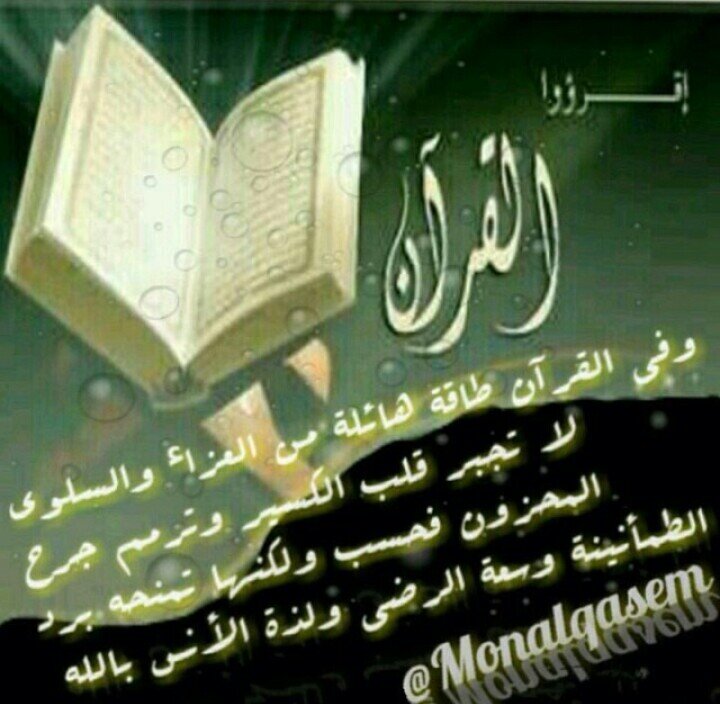 إقـــرؤوا
القرآن
وفي القرآن طاقة هائلة من العزاء والسلوى
لا تجبر قلب الكسير وترمم جرح
المحزون فحسب ولكنها تمنحه برد
الطمأنينة وسعة الرضى ولذة الأنس بالله
@Monalqasem